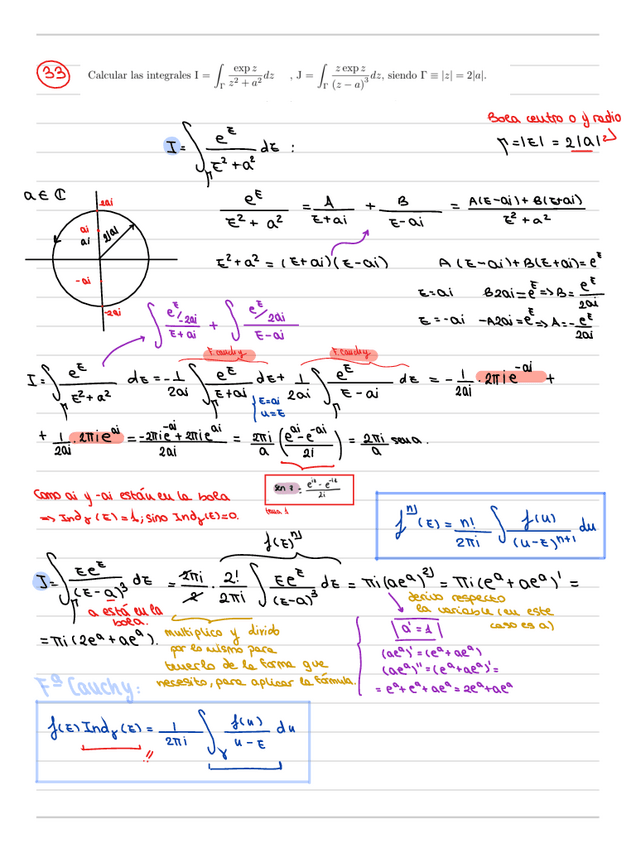 33
Calcular las integrales I = ∫_Γ exp z / (z² + a²) dz , J = ∫_Γ z exp z / (z − a)³ dz, siendo Γ ≡ |z| = 2|a|.
Bola centro 0 y radio
Γ=|z| = 2|a|
I = ∫_Γ e^z / (z²+a²) dz :
a ∈ ℂ
2ai
ai
ai
2|a|
-ai
-2ai
e^z / (z² + a²) = A / (z+ai) + B / (z-ai) = (A(z-ai) + B(z+ai)) / (z² + a²)
z²+a² = (z+ai)(z-ai)
A(z-ai)+B(z+ai)=e^z
z=ai B2ai=e^z => B= e^z / 2ai
z=-ai -A2ai=e^z => A=- e^z / 2ai
∫ (e^z/-2ai) / (z+ai) + ∫ (e^z/2ai) / (z-ai)
F. Cauchy
F. Cauchy
I= ∫_Γ e^z / (z²+a²) dz = - 1/2ai ∫_Γ e^z / (z+ai) dz + 1/2ai ∫_Γ e^z / (z-ai) dz = - 1/2ai · 2πi e^-ai +
z=ai
u=z
+ 1/2ai · 2πi e^ai = (-2πi e^-ai + 2πi e^ai) / 2ai = 2πi/a ((e^ai - e^-ai) / 2i) = 2πi/a sen a.
sen z = (e^iz - e^-iz) / 2i
tema 1
Como ai y -ai están en la bola
=> Ind_γ(z)=1; sino Ind_γ(z)=0.
f^n)(z) = n!/2πi ∫_γ f(u) / (u-z)^n+1 du
f(z)^n)
J= ∫_Γ z e^z / (z-a)³ dz = 2πi/2 · 2!/2πi ∫ z e^z / (z-a)³ dz = πi (a e^a)^2) = πi (e^a + a e^a)' =
a está en la
bola.
= πi (2e^a + a e^a).
multiplico y divido
por lo mismo para
tenerlo de la forma que
necesito, para aplicar la fórmula.
derivo respecto
la variable (en este
caso es a)
a' = 1
(ae^a)' = (e^a + ae^a)
(ae^a)'' = (e^a + ae^a)' =
= e^a + e^a + ae^a = 2e^a + ae^a
Fª Cauchy:
f(z) Ind_γ(z) = 1/2πi ∫_γ f(u) / (u-z) du
!!